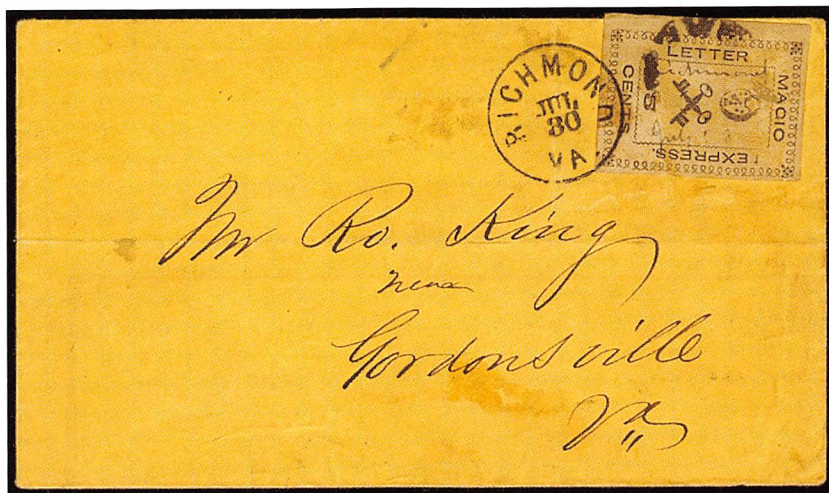 RICHMOND
JUL
30
VA.
LETTER
MAGIC
EXPRESS.
CENTS
Richmond
July
Mr Ro. King
near
Gordonsville
Va